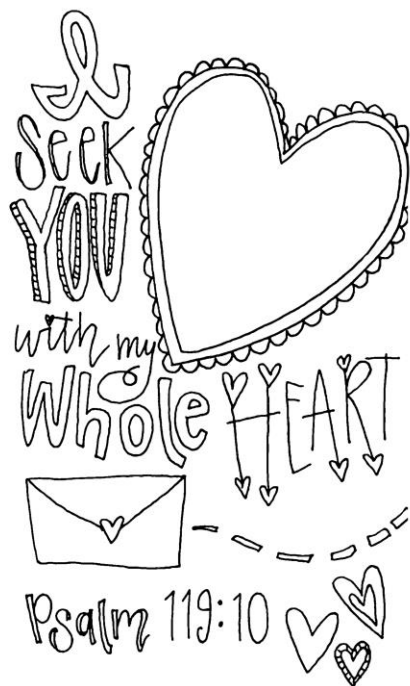 I
seek
YOU
with my
Whole HEART
Psalm 119:10